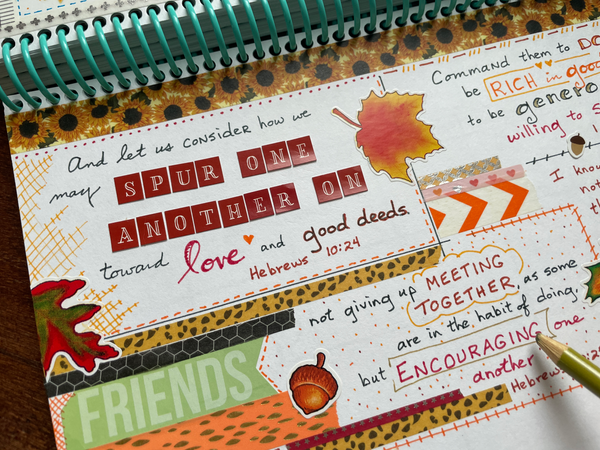 And let us consider how we
may SPUR ONE
ANOTHER ON
toward love and good deeds.
Hebrews 10:24
Command them to
be RICH in
to be
willing to
I
not giving up MEETING
TOGETHER, as some
are in the habit of doing,
but ENCOURAGING one
another
FRIENDS